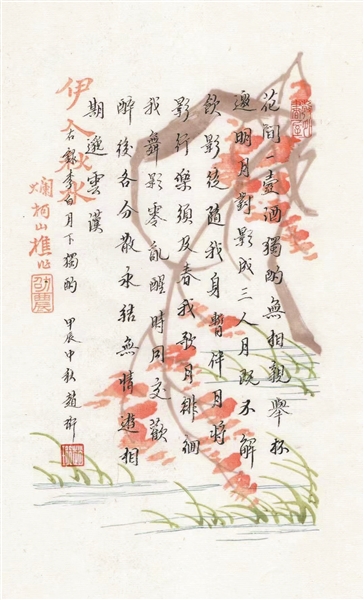 花間一壺酒獨酌無相親舉杯
邀明月對影成三人月既不解
飲影徒隨我身暫伴月將
影行樂須及春我歌月徘徊
我舞影零亂醒時同交歡
醉後各分散永結無情遊相
期邈雲漢
右錄李白月下獨酌 甲辰中秋趙
伊人秋水
爛柯山樵作